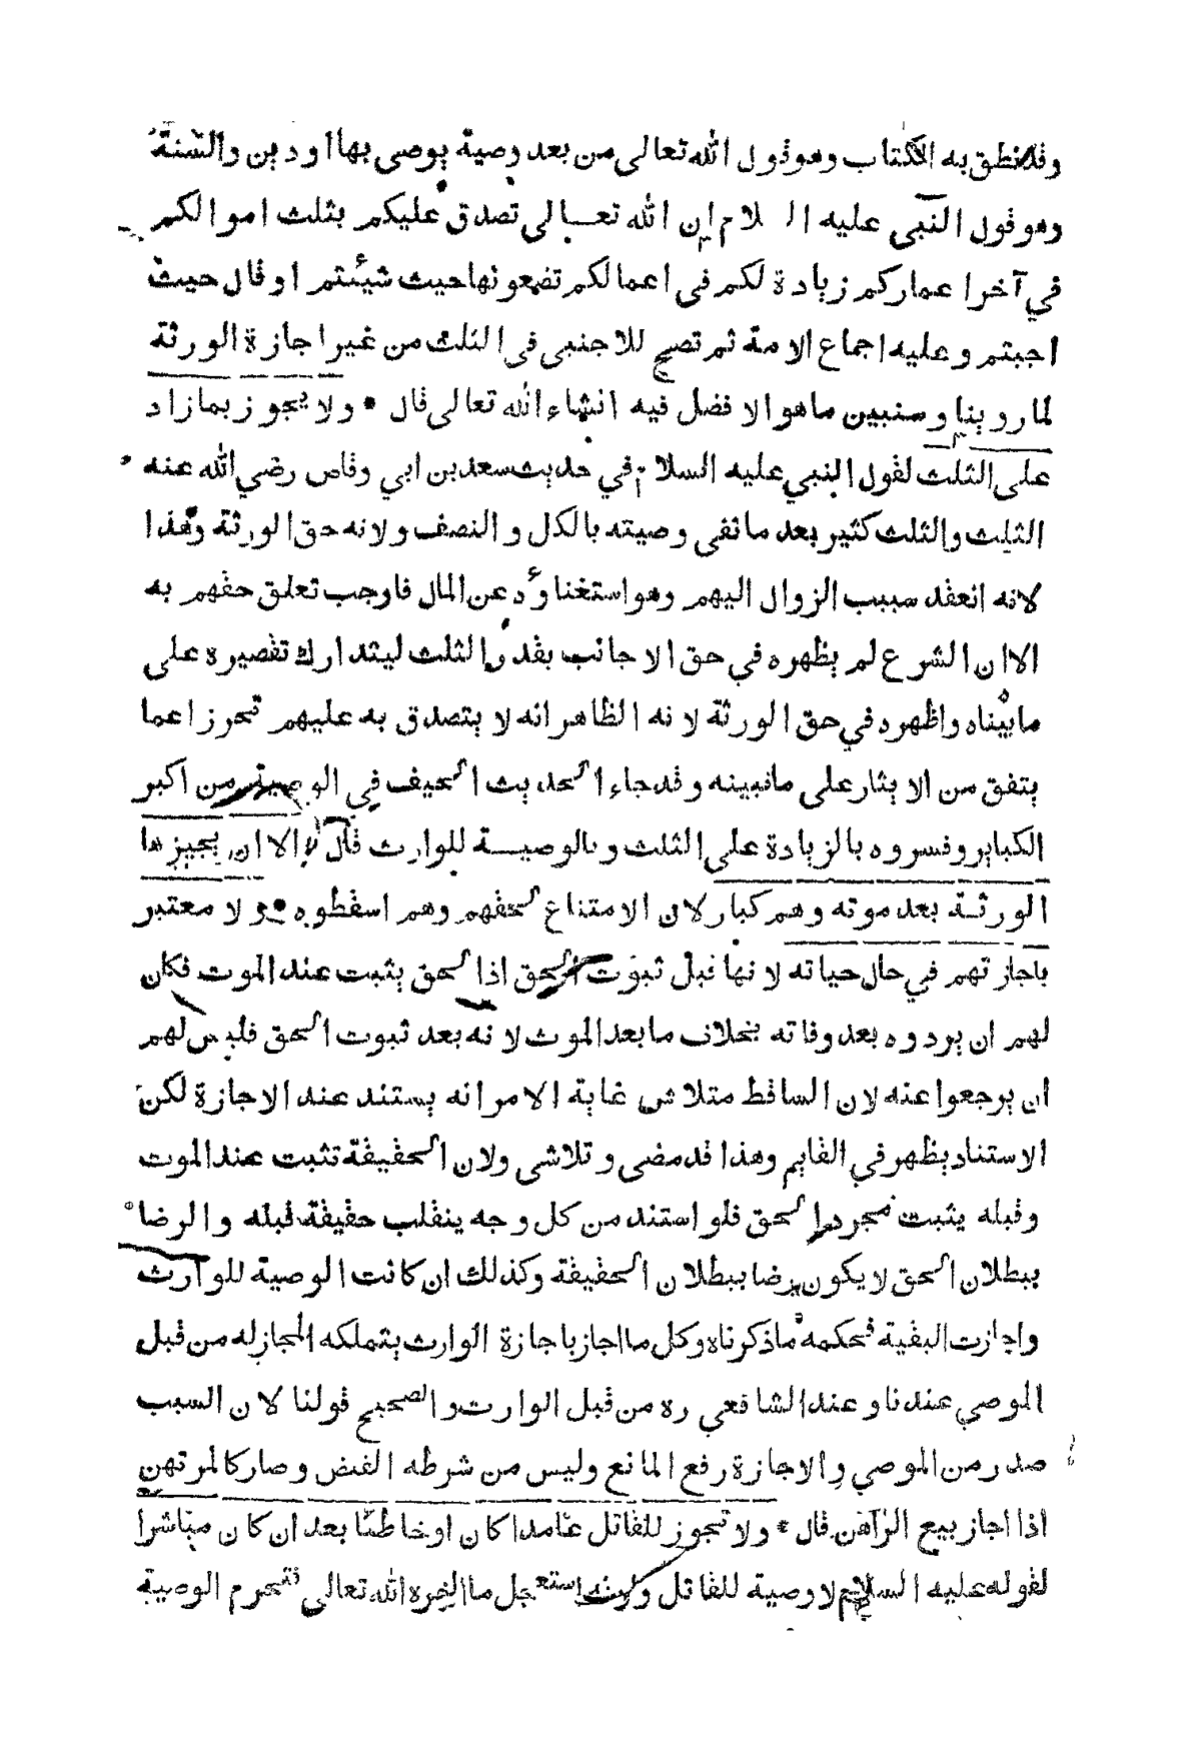 وقد نطق به الكتاب وهو قول الله تعالى من بعد وصية يوصى بها او دين والسنة
وهو قول النبى عليه السلام ان الله تعالى تصدق عليكم بثلث اموالكم
في آخر اعماركم زيادة لكم فى اعمالكم تضعونها حيث شيئتم او قال حيث
احببتم وعليه اجماع الامة ثم تصح للاجنبى فى الثلث من غير اجازة الورثة
لما روينا وسنبين ما هو الافضل فيه انشاء الله تعالى قال * ولا يجوز بما زاد
على الثلث لقول النبي عليه السلام في حديث سعد بن ابي وقاص رضي الله عنه
الثلث والثلث كثير بعد ما نفى وصيته بالكل والنصف ولانه حق الورثة وهذا
لانه انعقد سبب الزوال اليهم وهو استغناؤه عن المال فاوجب تعلق حقهم به
الا ان الشرع لم يظهره في حق الاجانب بقدر الثلث ليتدارك تقصيره على
ما بيناه واظهره في حق الورثة لانه الظاهر انه لا يتصدق به عليهم تحرزا عما
يتفق من الايثار على ما نبينه وقد جاء الحديث الحيف في الوصية من اكبر
الكباير وفسروه بالزيادة على الثلث وبالوصية للوارث قال الا ان يجيزها
الورثة بعد موته وهم كبار لان الامتناع لحقهم وهم اسقطوه * ولا معتبر
باجازتهم في حال حياته لانها قبل ثبوت الحق اذا الحق يثبت عند الموت فكان
لهم ان يردوه بعد وفاته بخلاف ما بعد الموت لانه بعد ثبوت الحق فليس لهم
ان يرجعوا عنه لان الساقط متلاش غاية الامر انه يستند عند الاجازة لكن
الاستناد يظهر في القايم وهذا قد مضى وتلاشى ولان الحقيقة تثبت عند الموت
وقبله يثبت مجرد الحق فلو استند من كل وجه ينقلب حقيقة قبله والرضا
ببطلان الحق لا يكون رضا ببطلان الحقيقة وكذلك ان كانت الوصية للوارث
واجازت البقية فحكمه ما ذكرناه وكل ما اجاز باجازة الوارث يتملكه المجاز له من قبل
الموصي عندنا وعند الشافعي ره من قبل الوارث والصحيح قولنا لان السبب
صدر من الموصي والاجازة رفع المانع وليس من شرطه القبض وصار كالمرتهن
اذا اجاز بيع الراهن قال * ولا تجوز للقاتل عامدا كان او خاطئا بعد ان كان مباشرا
لقوله عليه السلام لا وصية للقاتل ولانه استعجل ما اخره الله تعالى فتحرم الوصية